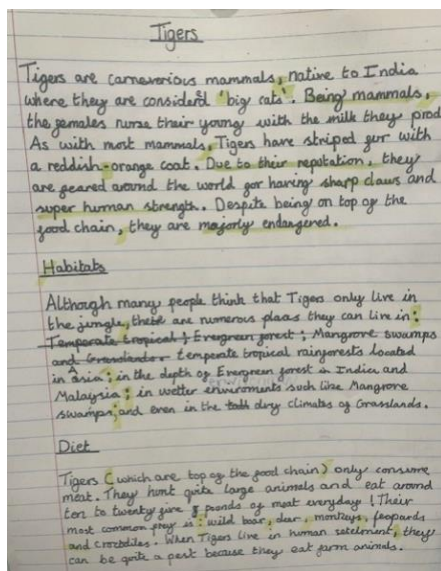 Tigers
Tigers are carneverious mammals, native to India
where they are considerd 'big cats'. Being mammals,
the females nurse their young with the milk they prod
As with most mammals, Tigers have striped fur with
a reddish-orange coat. Due to their reputation, they
are feared around the world for having sharp claws and
super human strength. Despite being on top of the
food chain, they are majorly endangered.
Habitats
Although many people think that Tigers only live in
the jungle, there are numerous places they can live in:
Temperate tropical Evergreen forest; Mangrove swamps
and Grasslands temperate tropical rainforests located
in Asia; in the depth of Evergreen forest in India and
Malaysia; in wetter enviroments such like Mangrove
swamps; and even in the tall dry climates of Grasslands.
Diet
Tigers (which are top of the food chain) only consume
meat. They hunt quite large animals and eat around
ten to twenty five pounds of meat everyday! Their
most common prey is: wild boar, deer, monkeys, leopards
and Crocodiles. When Tigers live in human setelment, they
can be quite a pest because they eat farm animals.